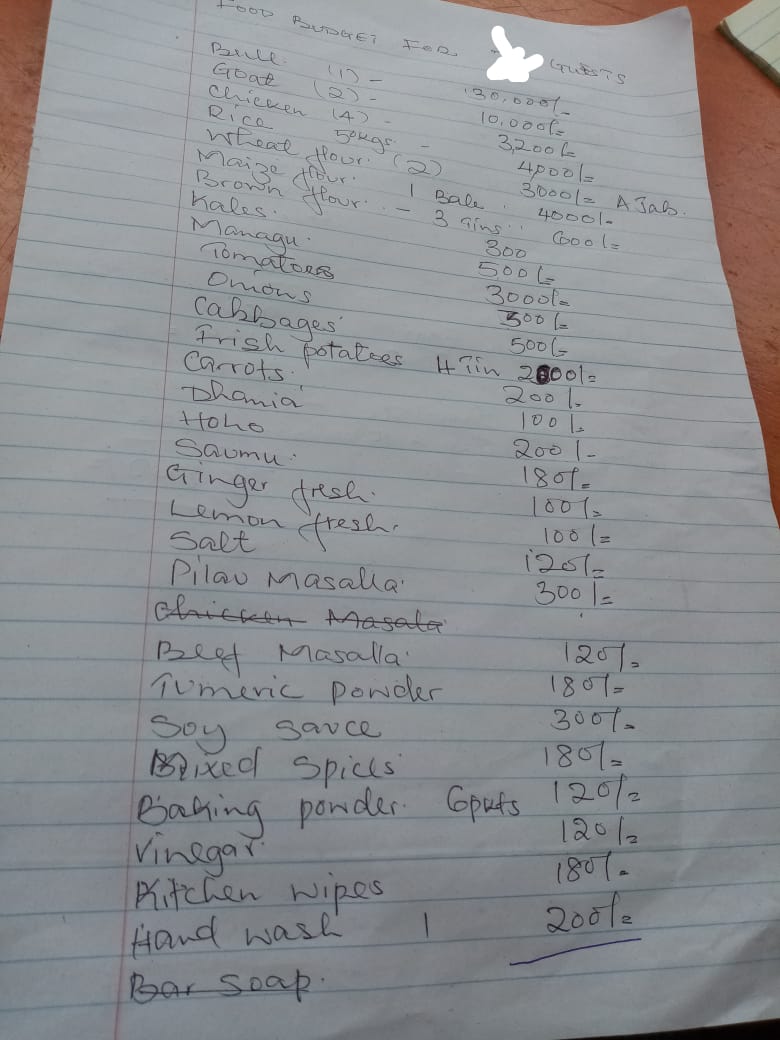 FOOD BUDGET FOR GUESTS
Bull. (1) - 30,000/-
Goat (2) - 10,000/=
Chicken (4) - 3,200/=
Rice 50kgs. - 4000/=
Wheat flour. (2) 3000/= AJab.
Maize flour. 1 Bale. 4000/-
Brown flour. - 3 Tins.. 600/=
Kales. 300
Managu. 500/=
Tomatoes 3000/=
Onions 500/=
Cabbages 500/=
Irish potatoes 4 Tin 2000/=
Carrots. 200/-
Dhania 100/-
Hoho 200/-
Saumu. 180/=
Ginger fresh. 100/=
Lemon fresh. 100/=
Salt 120/=
Pilau Masalla. 300/=
Chicken Masala
Beef Masalla. 120/=
Tumeric powder 180/=
Soy Sauce 300/=
Mixed Spices 180/=
Baking powder. 6pkts 120/=
Vinegar. 120/=
Kitchen wipes 180/=
Hand wash 1 200/=
Bar soap.